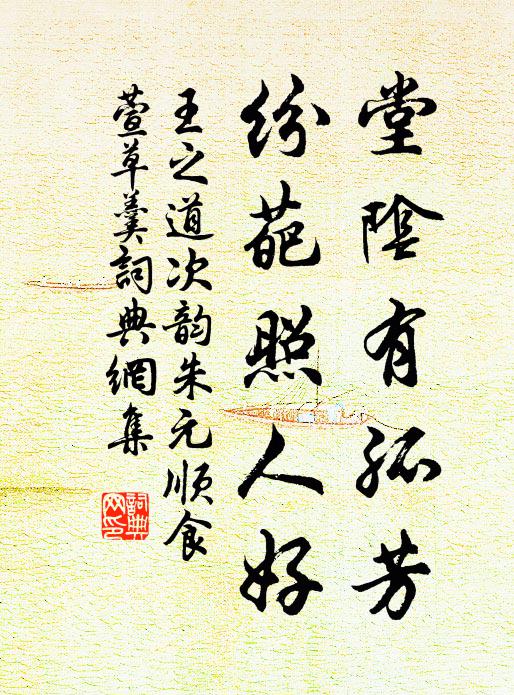 堂陰有孤芳
紛葩照人好
王之道次韵朱元順食
萱草羹詞典網集
詞典网印